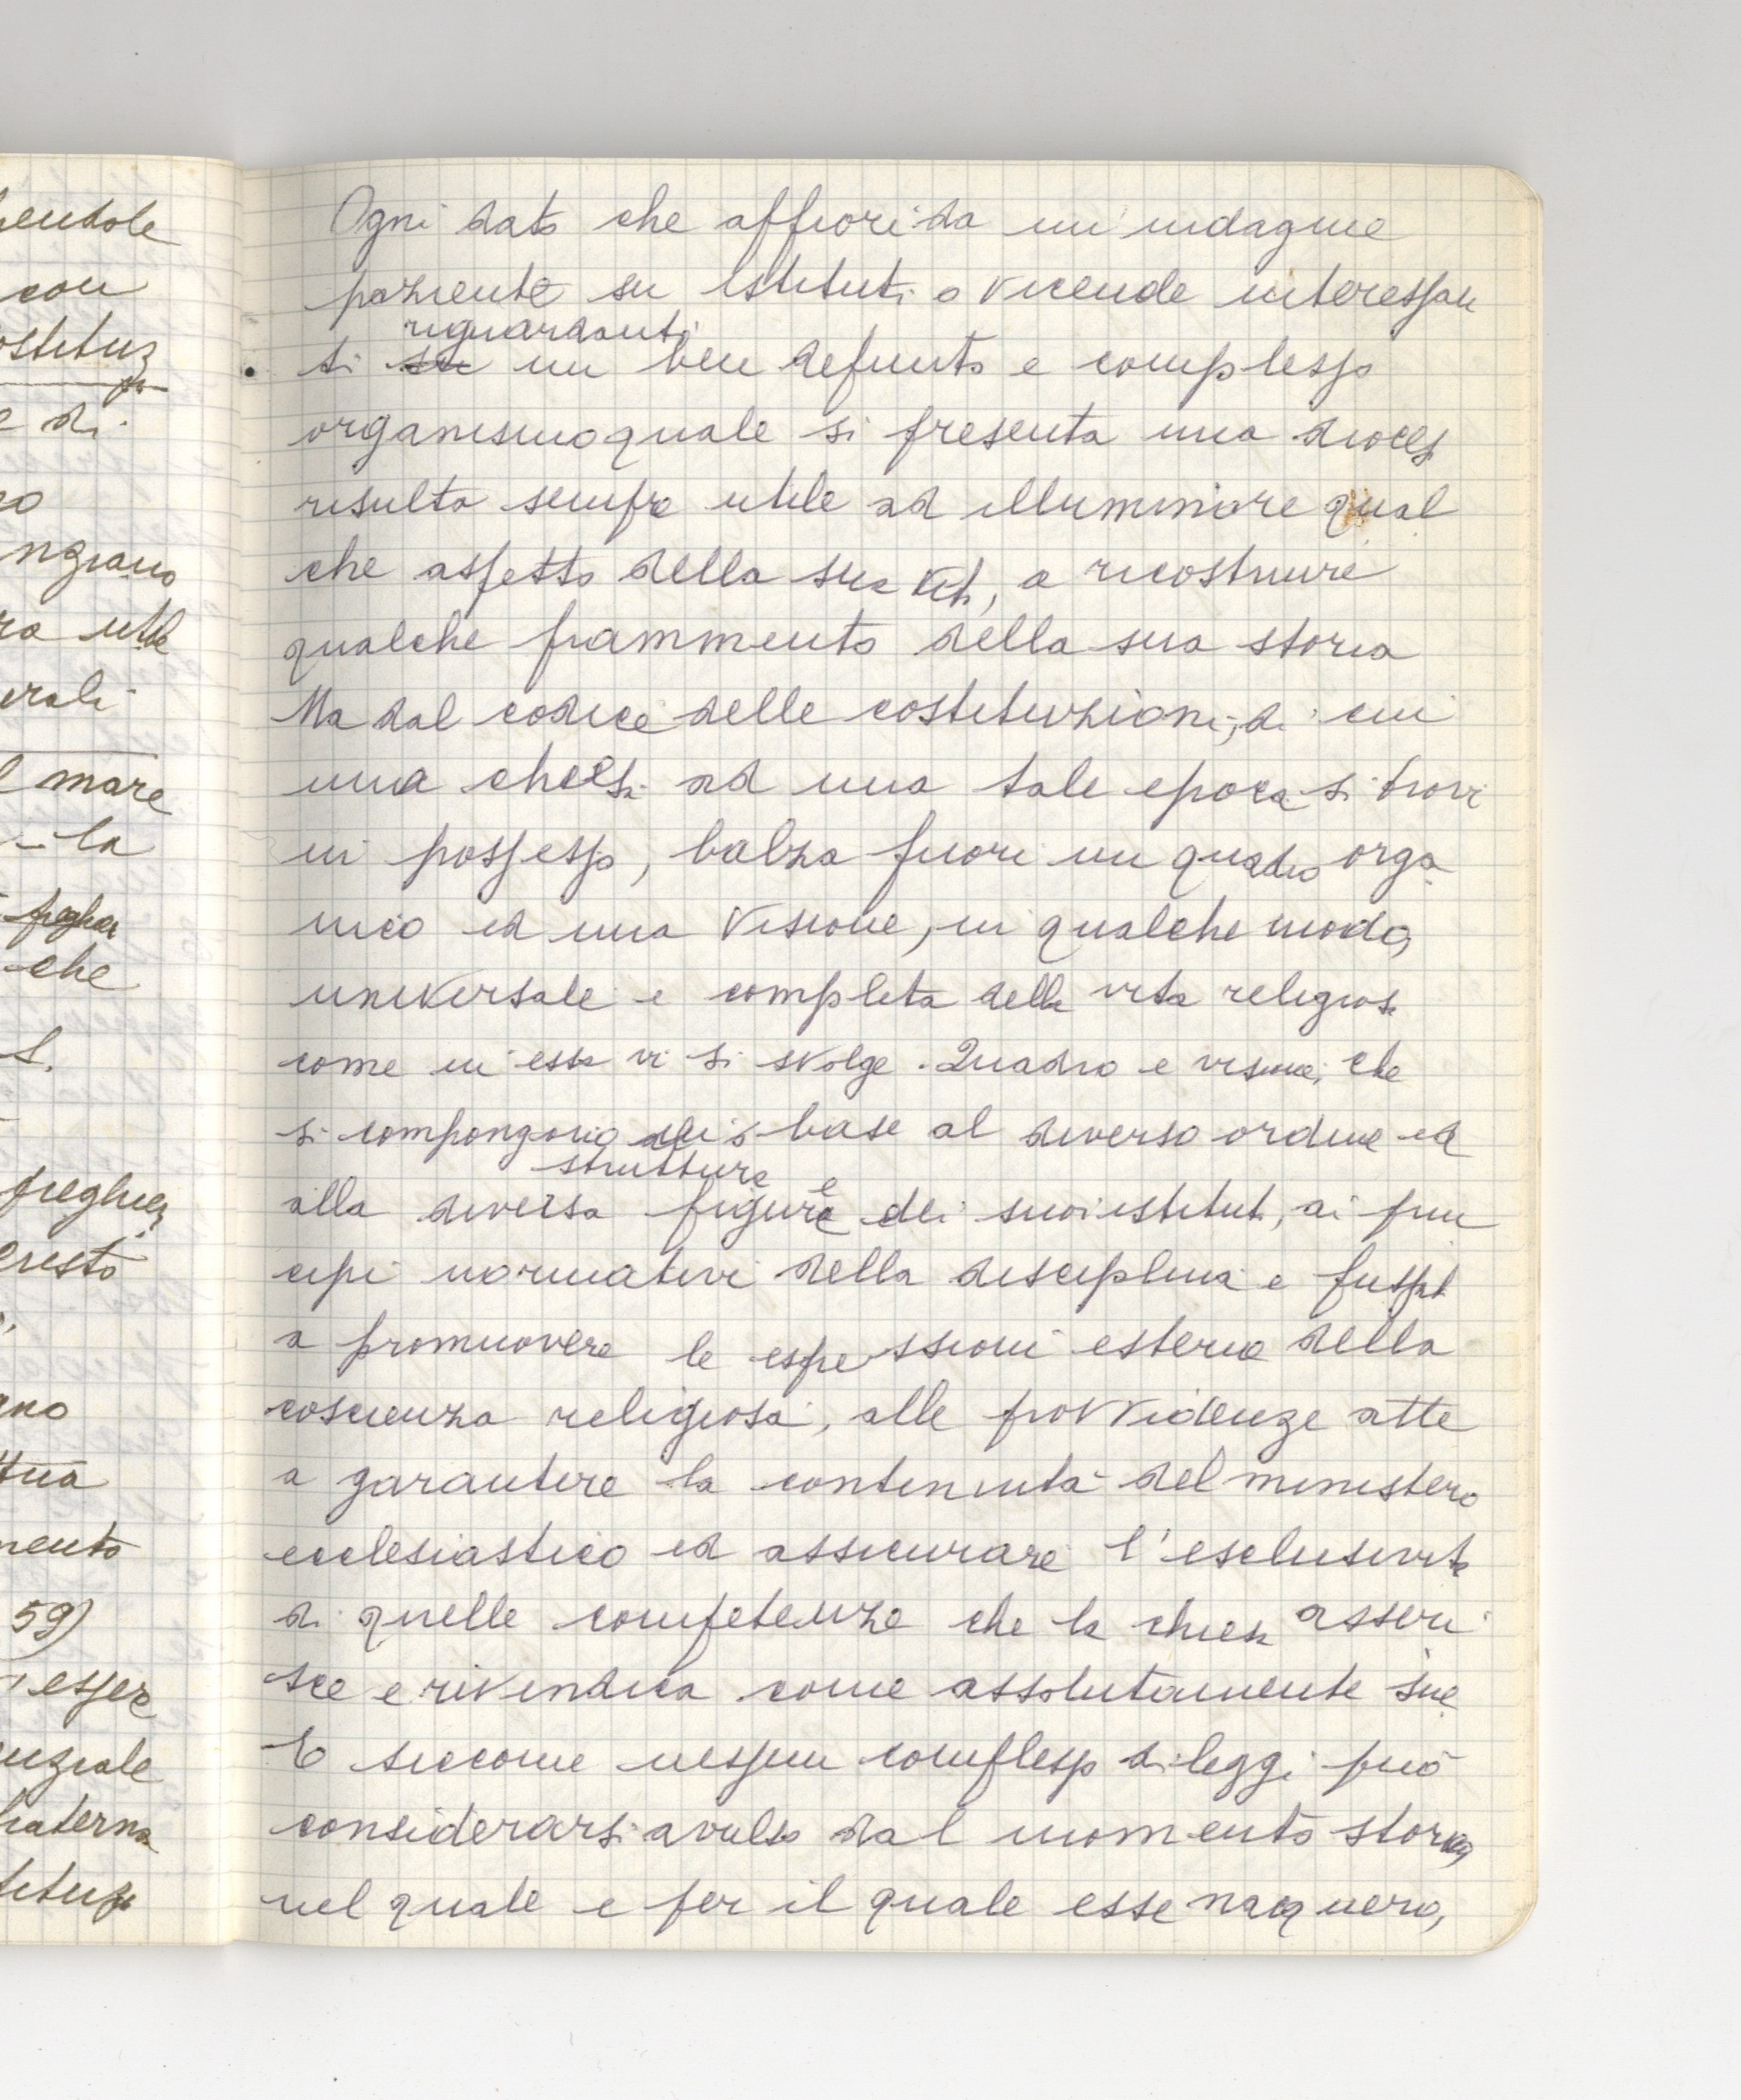 hentole
con
ostituz
e di
ngiano
ra utile
erali
l mare
la
che
S.
preghier
Cristo
ano
mento
59)
essere
nziale
fraterna
Ogni dato che affiori da un'indagine
paziente su istituti o vicende interessan
riguardanti
ti su un ben definito e complesso
organismo quale si presenta una diocesi
risulta sempre utile ad illuminare qual
che aspetto della sua vita, a ricostruire
qualche frammento della sua storia
Ma dal codice delle costituzioni, di cui
una chiesa ad una tale epoca si trovi
in possesso, balza fuori un quadro orga
nico ed una visione, in qualche modo,
universale e completa della vita religiosa
come in essa vi si svolge. Quadro e visione, che
si compongono in base al diverso ordine ed
struttura e
alla diversa figura dei suoi istituti, ai prin
cipi normativi della disciplina e
a promuovere le espressioni esterne della
coscienza religiosa, alle provvidenze atte
a garantire la continuità del ministero
ecclesiastico ed assicurare l'esclusività
di quelle competenze che la chiesa asseri
sce e rivendica come assolutamente sue
E siccome nessun complesso di leggi può
considerarsi avulso dal momento storico,
nel quale e per il quale esse nacquero,